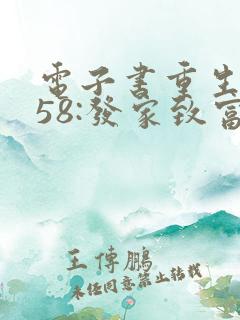 電子書重生
58:發家致富
王傳鵬
未经同意禁止转载